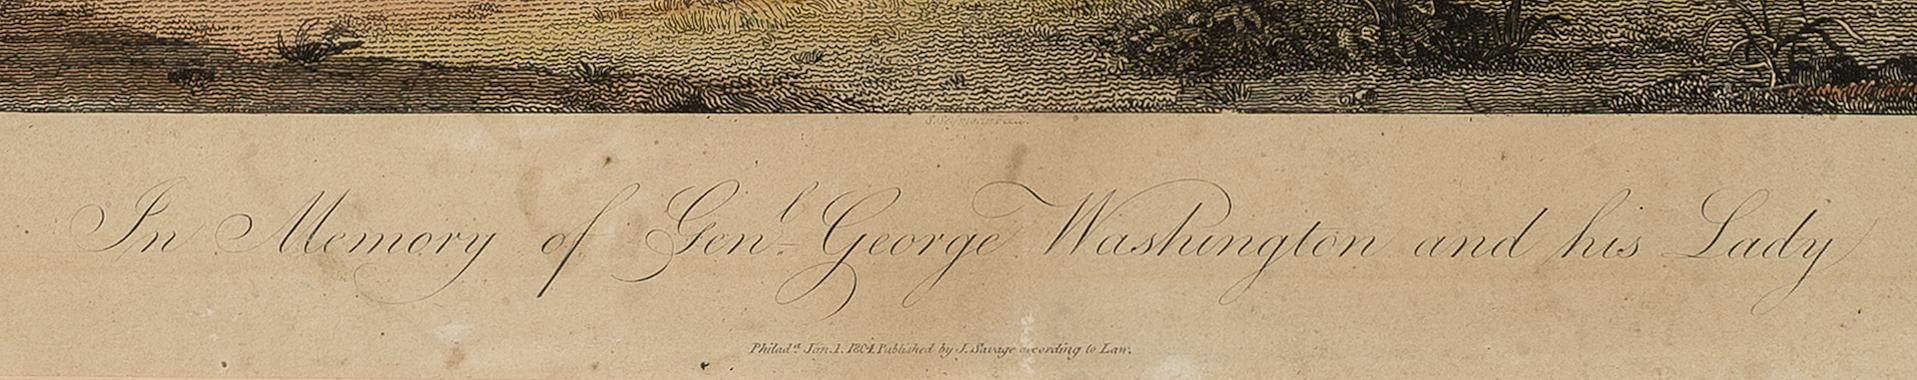 In Memory of Gen.l George Washington and his Lady
Philad.a Jan.1.1804 Published by J. Savage according to Law.